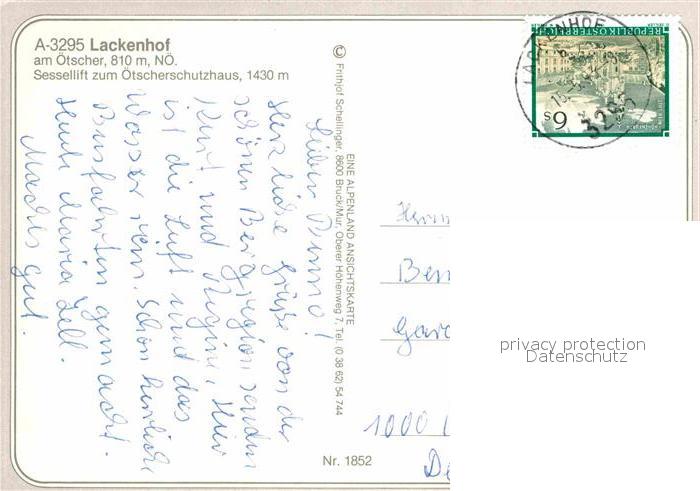 A-3295 Lackenhof
am Ötscher, 810 m, NÖ.
Sessellift zum Ötscherschutzhaus, 1430 m
Lieber Benno!
Herzliche Grüße von der
schönen Bergregion senden
Kurt und Regina. Hier
ist die Luft und das
Wasser rein. Schon herrliche
Busfahrten gemacht.
Heute Maria Zell.
Machs gut.
EINE ALPENLAND ANSICHTSKARTE
© Frithjof Schellinger, 8600 Bruck/Mur, Oberer Höhenweg 7, Tel. (0 38 62) 54 744
Nr. 1852
REPUBLIK ÖSTERREICH
S 6
LACKENHOF
3295
Herrn
Ben
Gar
1000
De
privacy protection
Datenschutz